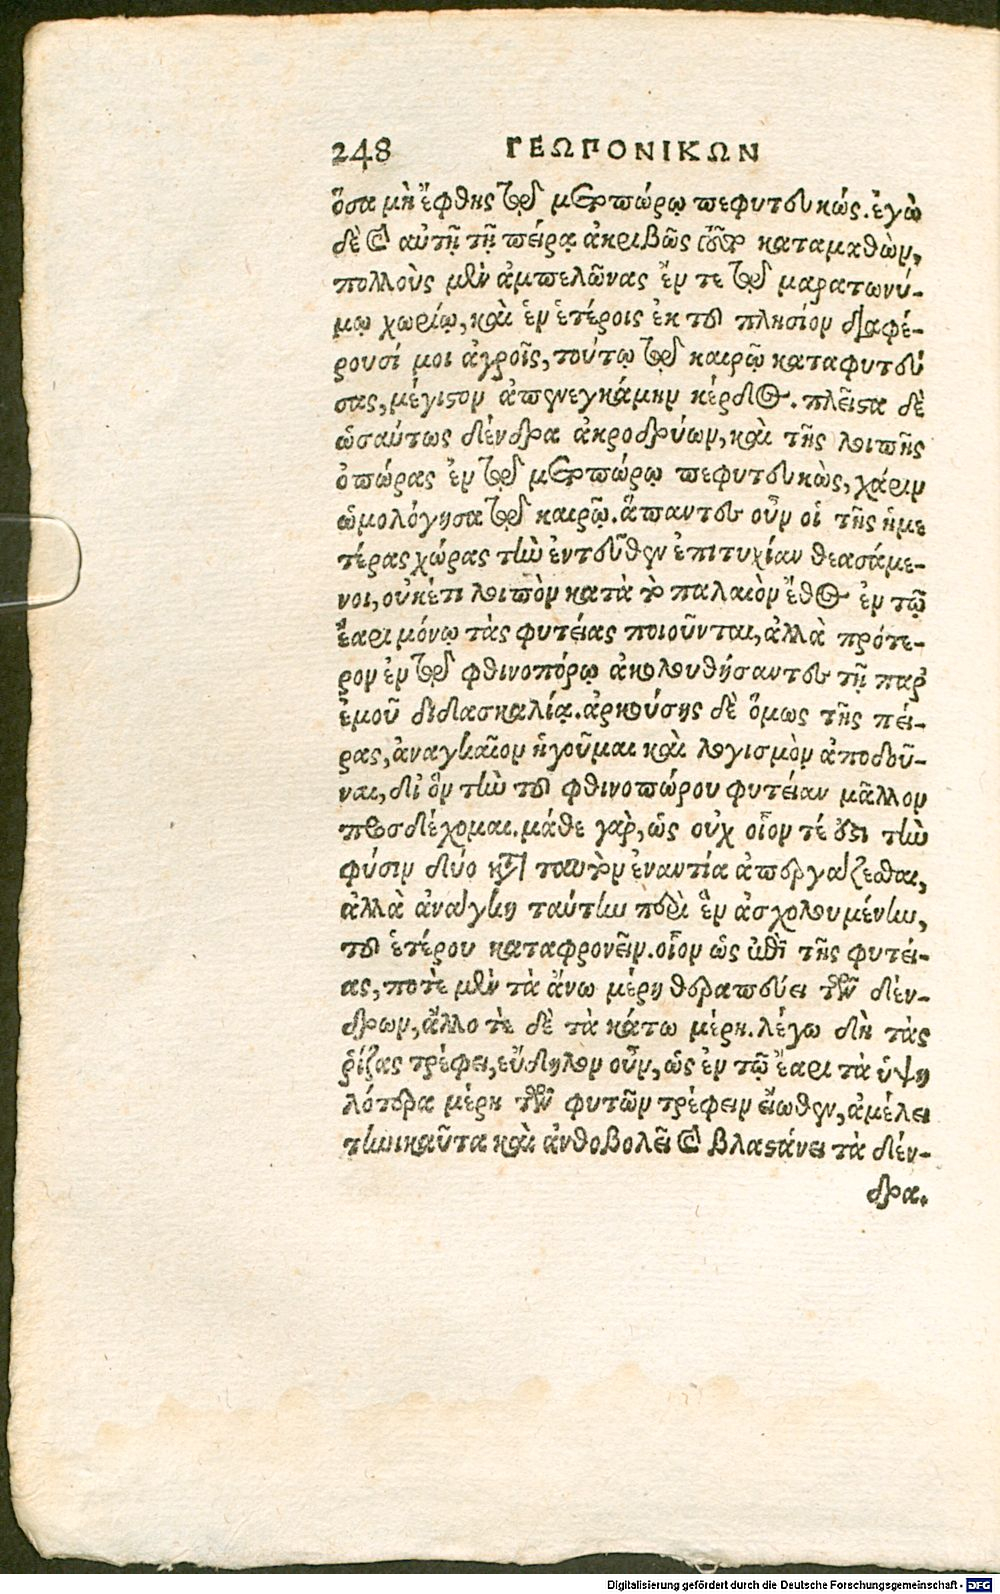 248 ΓΕΩΠΟΝΙΚΩΝ
ὅσα μὴ ἔφθης τῷ μετοπώρῳ πεφυτευκώς. ἐγὼ
δὲ καὶ αὐτῇ τῇ πείρᾳ ἀκριβῶς τοῦτο καταμαθὼν,
πολλοὺς μὲν ἀμπελῶνας ἔν τε τῷ μαρατωνύ-
μῳ χωρίῳ, καὶ ἐν ἑτέροις ἐκ τοῦ πλησίον διαφέ-
ρουσί μοι ἀγροῖς, τούτῳ τῷ καιρῷ καταφυτεύ
σας, μέγιστον ἀπηνεγκάμην κέρδος. πλεῖστα δὲ
ὡσαύτως δένδρα ἀκροδρύων, καὶ τῆς λοιπῆς
ὀπώρας ἐν τῷ μετοπώρῳ πεφυτευκὼς, χάριν
ὡμολόγησα τῷ καιρῷ. ἅπαντες οὖν οἱ τῆς ἡμε
τέρας χώρας τὴν ἐντεῦθεν ἐπιτυχίαν θεασάμε-
νοι, οὐκέτι λοιπὸν κατὰ τὸ παλαιὸν ἔθος ἐν τῷ
ἔαρι μόνῳ τὰς φυτείας ποιοῦνται, ἀλλὰ πρότε-
ρον ἐν τῷ φθινοπόρῳ ἀκολουθήσαντες τῇ παρ
ἐμοῦ διδασκαλίᾳ. ἀρκούσης δὲ ὅμως τῆς πεί-
ρας, ἀναγκαῖον ἡγοῦμαι καὶ λογισμὸν ἀποδοῦ-
ναι, δι ὃν τὴν τοῦ φθινοπώρου φυτείαν μᾶλλον
προσδέχομαι. μάθε γὰρ, ὡς οὐχ οἷον τέ ἐστι τὴν
φύσιν δύο κατὰ ταυτὸν ἐναντία ἀπεργάζεσθαι,
ἀλλὰ ἀνάγκη ταύτην περὶ ἓν ἀσχολουμένην,
τοῦ ἑτέρου καταφρονεῖν. οἷον ὡς ἐπὶ τῆς φυτεί-
ας, ποτὲ μὲν τὰ ἄνω μέρη θεραπεύει τῶν δέν-
δρων, ἄλλο τὲ δὲ τὰ κάτω μέρη. λέγω δὴ τὰς
ῥίζας τρέφει, εὔδηλον οὖν, ὡς ἐν τῷ ἔαρι τὰ ὑψη
λότερα μέρη τῶν φυτῶν τρέφειν εἴωθεν, ἀμέλει
τηνικαῦτα καὶ ἀνθοβολεῖ καὶ βλαστάνει τὰ δέν-
δρα.
Digitalisierung gefördert durch die Deutsche Forschungsgemeinschaft - DFG